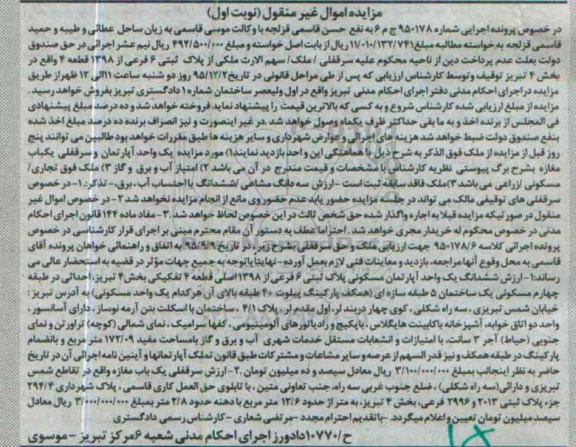 مزایده اموال غیر منقول (نوبت اول)
در خصوص پرونده اجرایی شماره 950178 ج م 6 به نفع حسن قاسمی قزلجه با وکالت موسی قاسمی به زیان ساحل عطائی و طیبه و حمید
قاسمی قزلجه به خواسته مطالبه مبلغ 11/010/132/741 ریال از بابت اصل خواسته و مبلغ 492/500/000 ریال نیم عشر اجرائی در حق صندوق
دولت بعلت عدم پرداخت دین از ناحیه محکوم علیه سرقفلی / ملک/ سهم الارث ملکی از پلاک ثبتی 6 فرعی از 1398 قطعه 4 واقع در
بخش 4 تبریز توقیف و توسط کارشناس ارزیابی که پس از طی مراحل قانونی در تاریخ 95/12/2 روز دو شنبه ساعت 11 الی 12 ظهر از طریق
مزایده در اجرای احکام مدنی دفتر اجرای احکام مدنی تبریز واقع در اول ولیعصر ساختمان شماره 1 دادگستری تبریز بفروش خواهد رسید.
مزایده از مبلغ ارزیابی شده کارشناس شروع و به کسی که بالاترین قیمت را پیشنهاد نماید فروخته خواهد شد و ده درصد مبلغ پیشنهادی
فی المجلس از برنده اخذ و به مابقی حداکثر ظرف یکماه وصول خواهد شد. در غیر اینصورت و نیز انصراف برنده ده درصد مبلغ اخذ شده
بنفع صندوق دولت ضبط خواهد شد هزینه های اجرایی و عوارض شهرداری و سایر هزینه ها طبق مقررات خواهد بود طالبین می توانند پنج
روز قبل از مزایده از ملک فوق الذکر به شرح ذیل با هماهنگی این واحد بازدید نمایند. 1) مورد مزایده یک واحد آپارتمان و سرقفلی یکباب
مغازه بشرح برگ پیوستی نظریه کارشناس با مشخصات و قیمت مندرج در آن می باشد 2) امتیاز آب و برق و گاز 3) ملک فوق تجاری/
مسکونی /زراعی می باشد 3) ملک فاقد سابقه ثبت است - ارزش سه دانگ مشاعی /ششدانگ با احتساب آب، برق.. - تذکر: 1- در خصوص
سرقفلی های توقیفی مالک می تواند در جلسه مزایده حضور یابد عدم حضور وی مانع از انجام مزایده نخواهد شد 2- در خصوص اموال غیر
منقول در صورتیکه مزایده قبلا به اجاره واگذار شده حق شخص ثالث در این خصوص لحاظ خواهد شد. 3- مفاد ماده 144 قانون اجرای احکام
مدنی در خصوص محکوم له خریدار مجری خواهد شد. احتراما عطف به دستور آن مقام محترم مبنی بر اجرای قرار کارشناسی در خصوص
پرونده اجرائی کلاسه 950178/6 جهت ارزیابی ملک و حق سرقفلی بشرح زیر، در تاریخ 95/9/9 به اتفاق و راهنمائی خواهان پرونده آقای
قاسمی به محل وقوع آنها مراجعه، بازدید و معاینات فنی لازم بعمل آورده- نهایتا با توجه به جمیع جهات مؤثر در قضیه به استحضار عالی می
رساند: 1- ارزش ششدانگ یک واحد آپارتمان مسکونی پلاک ثبتی 6 فرعی از 1398 اصلی قطعه 4 تفکیکی بخش 4 تبریز، احداثی در طبقه
چهارم مسکونی یک ساختمان 5 طبقه سازه ای (همکف پارکینگ پیلوت + 4 طبقه بالای آن هر کدام یک واحد مسکونی) به آدرس تبریز :
خیابان شمس تبریزی ، سه راه شکلی ، کوی چهار در بند لر ، اول مقدم لر ، پلاک 4/1 ، ساختمان با اسکلت بتن آرمه نوساز ، دارای آسانسور ،
واحد دو اتاق خوابه، آشپزخانه با کابینت هایگلاس ، با پکیج و رادیاتورهای آلومینیومی ، کفها سرامیک ، نمای شمالی (کوچه) تراورتن و نمای
جنوبی (حیاط) آجر 3 سانت، با امتیازات و انشعابات مستقل خدمات شهری آب و برق و گاز بامساحت مفید 172/09 متر مربع و بانضمام
پارکینگ در طبقه همکف و نیز قدر السهم از عرصه و سایر مشاعات و مشترکات طبق قانون تملک آپارتمانها و آیین نامه اجرائی آن در تاریخ
حاضر به نظر اینجانب بمبلغ 3/100/000/000 ریال معادل سیصد و ده میلیون تومان. 2- ارزش سرقفلی یک باب مغازه واقع در تقاطع شمس
تبریزی و دارائی (سه راه شکلی) ، ضلع جنوب غربی سه راه، جنب تعاونی متین ، با تابلوی حق العمل کاری قاسمی ، پلاک شهرداری 294/4
جزء پلاک ثبتی 2013 و 2996 فرعی، بخش 4 تبریز، به متر از حدود 12/6 متر مربع با دهنه حدود 2/8 متر بمبلغ 3/000/000/000 ریال معادل
سیصد میلیون تومان تعیین و اعلام میگردد - با تقدیم احترام مجدد - مرتضی شعاری - کارشناس رسمی دادگستری
ح/10770 دادورز اجرای احکام مدنی شعبه 6 مرکز تبریز - موسوی